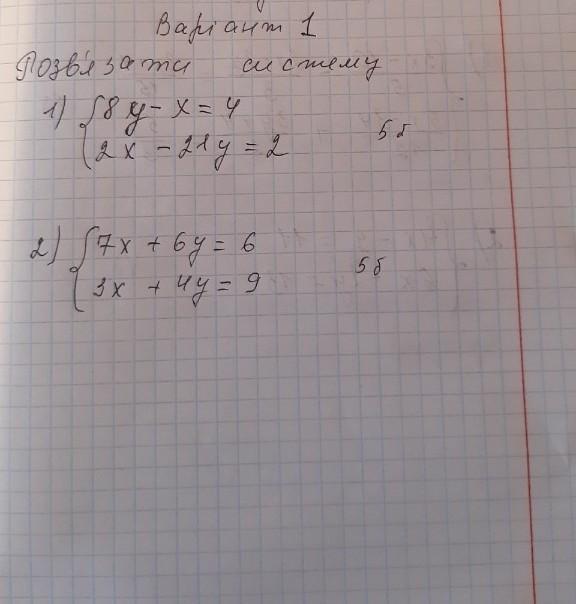 Варіант 1
Розв'язати систему
1) { 8y - x = 4
2x - 21y = 2
5 б
2) { 7x + 6y = 6
3x + 4y = 9
5 б